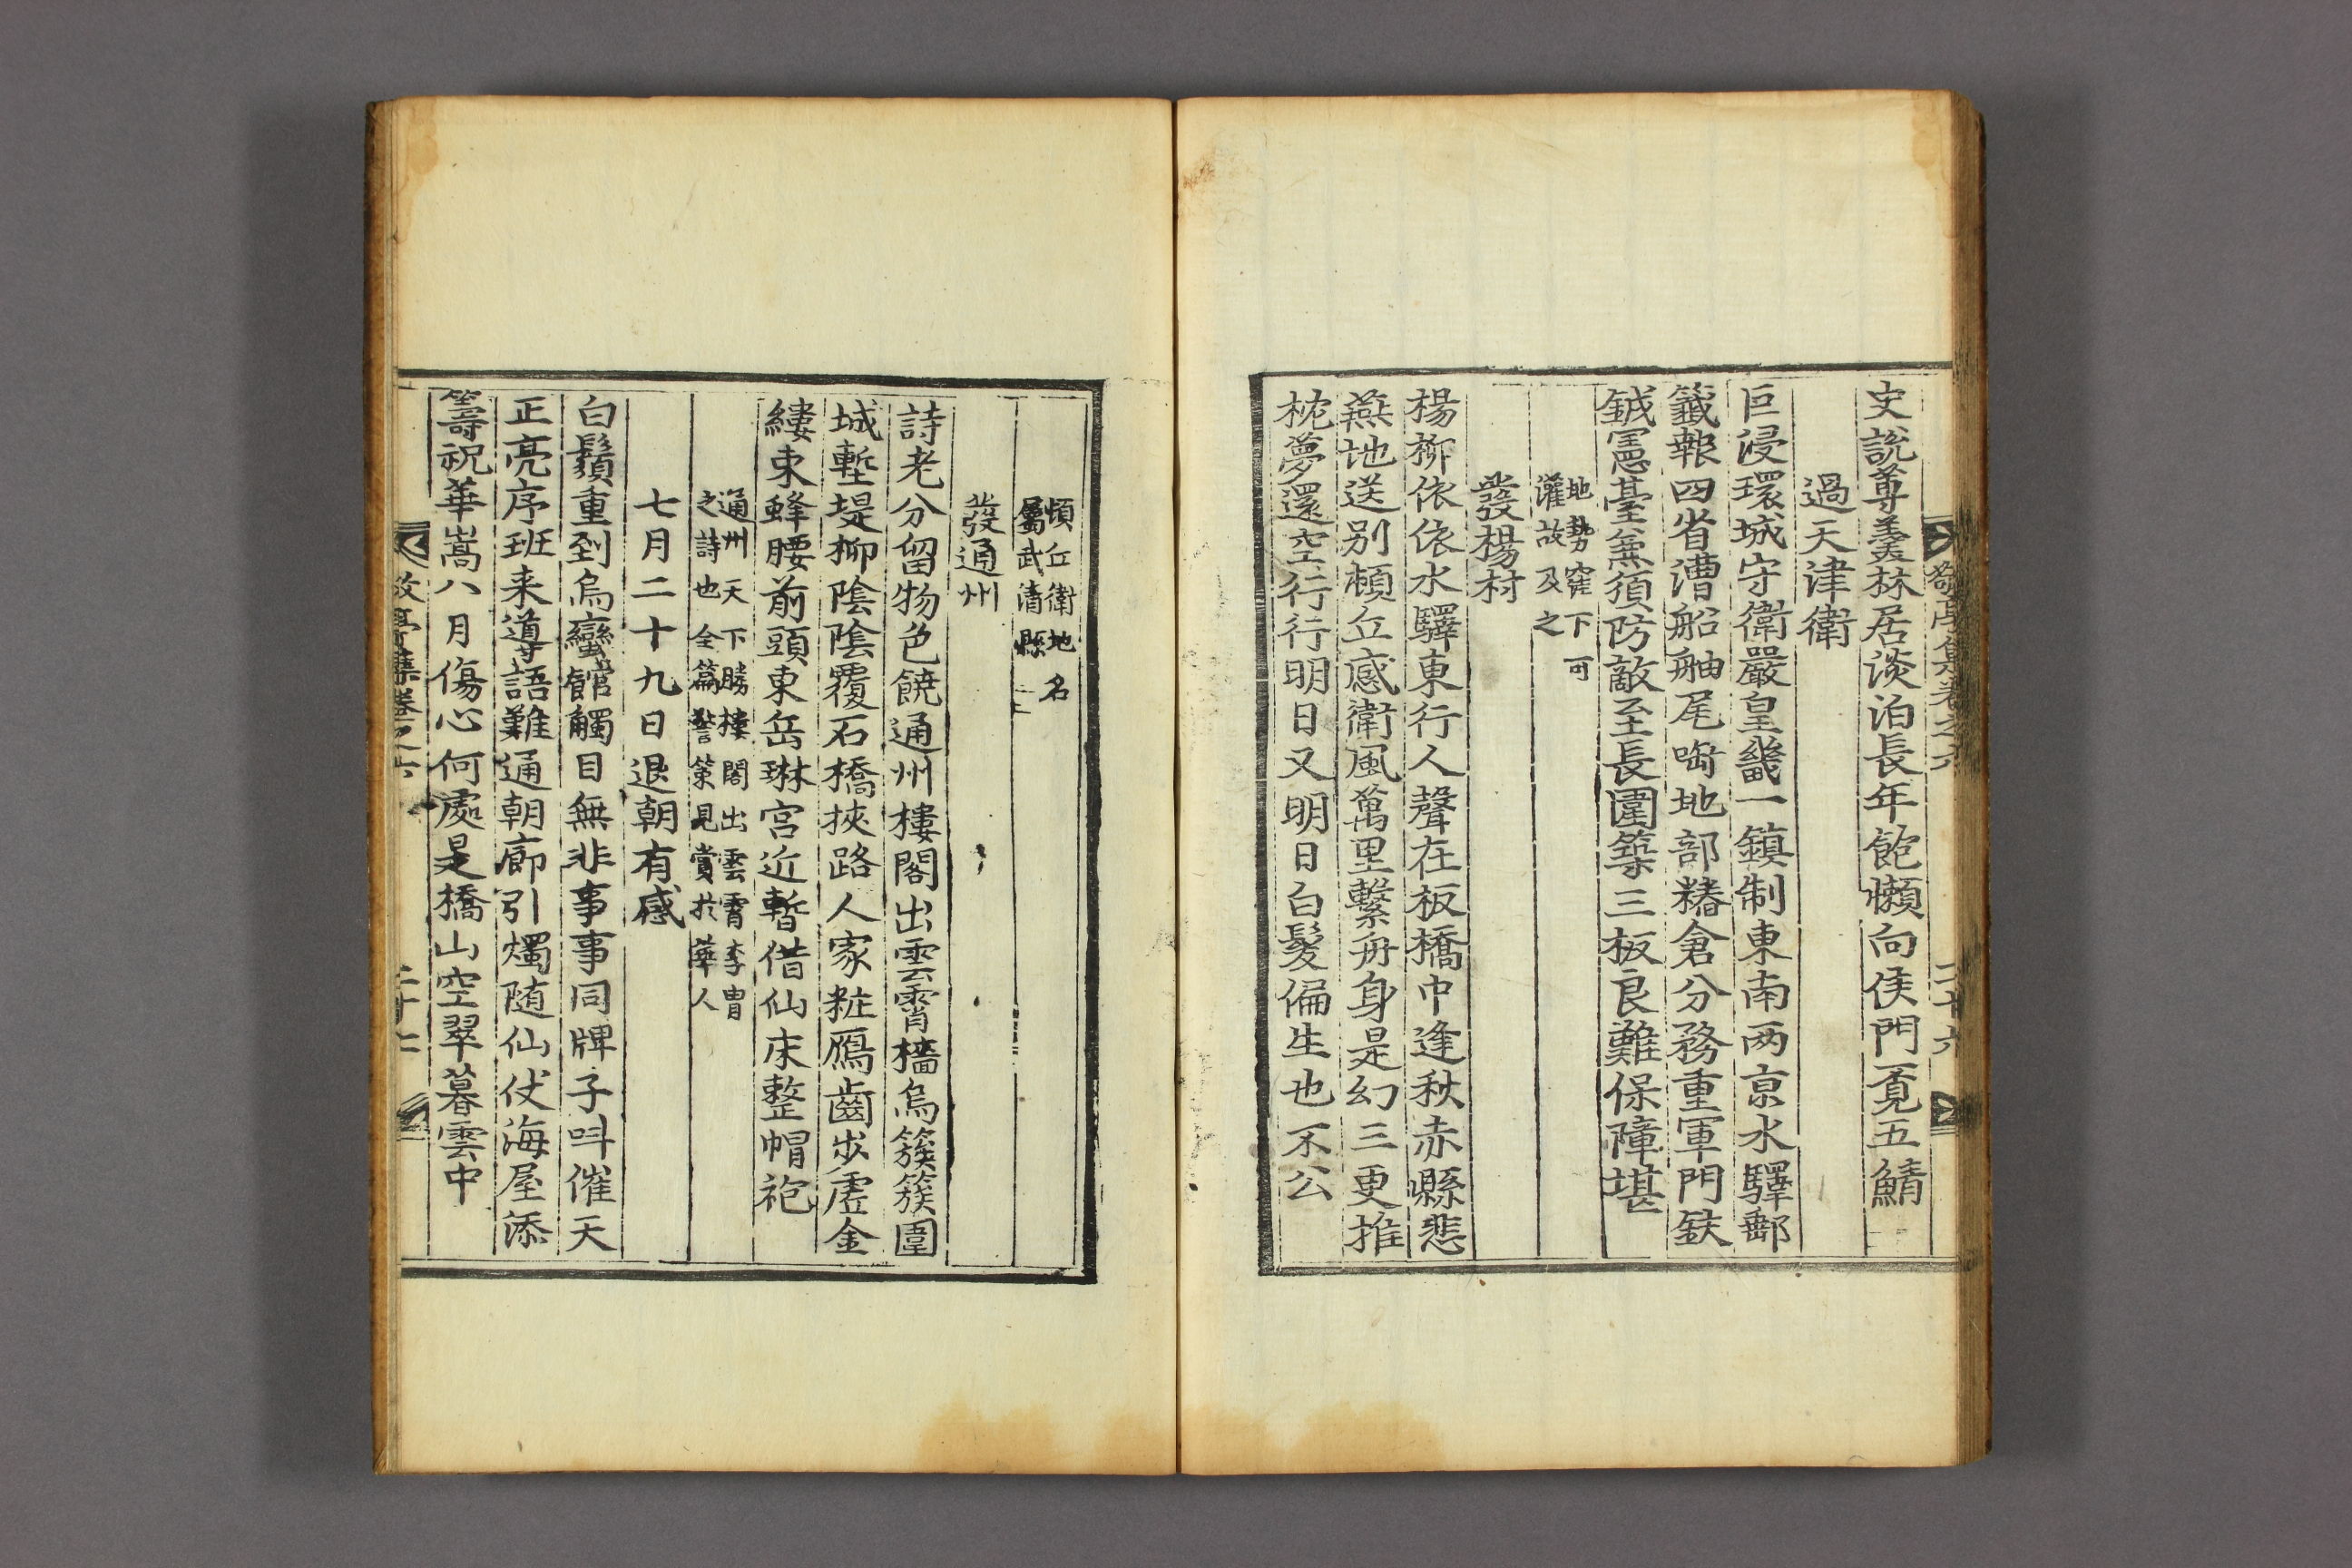 史說蓴羹林居淡泊長年飽懶向侯門覔五鯖
過天津衛
巨浸環城守衛嚴皇畿一鎮制東南兩京水驛郵
籤報四省漕船舳尾啣地部糌倉分務重軍門鈇
鉞憲臺兼須防敵至長圍築三板良難保障堪
地勢窪下可
灌故及之
發楊村
楊柳依依水驛東行人聲在板橋中逢秋赤縣悲
燕地送别頓丘感衛風萬里繫舟身是幻三更推
枕夢還空行行明日又明日白髮偏生也不公
敬亭集卷之六
二十六
頓丘衛地名
屬武清縣
發通州
詩老分留物色饒通州樓閣出雲霄檣烏簇簇圍
城塹堤柳陰陰覆石橋挾路人家粧鴈齒步虛金
縷束蜂腰前頭東岳琳宮近暫借仙床整帽袍
通州天下勝樓閣出雲霄李冑
之詩也全篇警策見賞於華人
七月二十九日退朝有感
白鬚重到烏蠻館觸目無非事事同牌子呌催天
正亮序班来導語難通朝廊引燭随仙仗海屋添
籌祝華嵩八月傷心何處是橋山空翠暮雲中
敬亭集卷之六
二十七